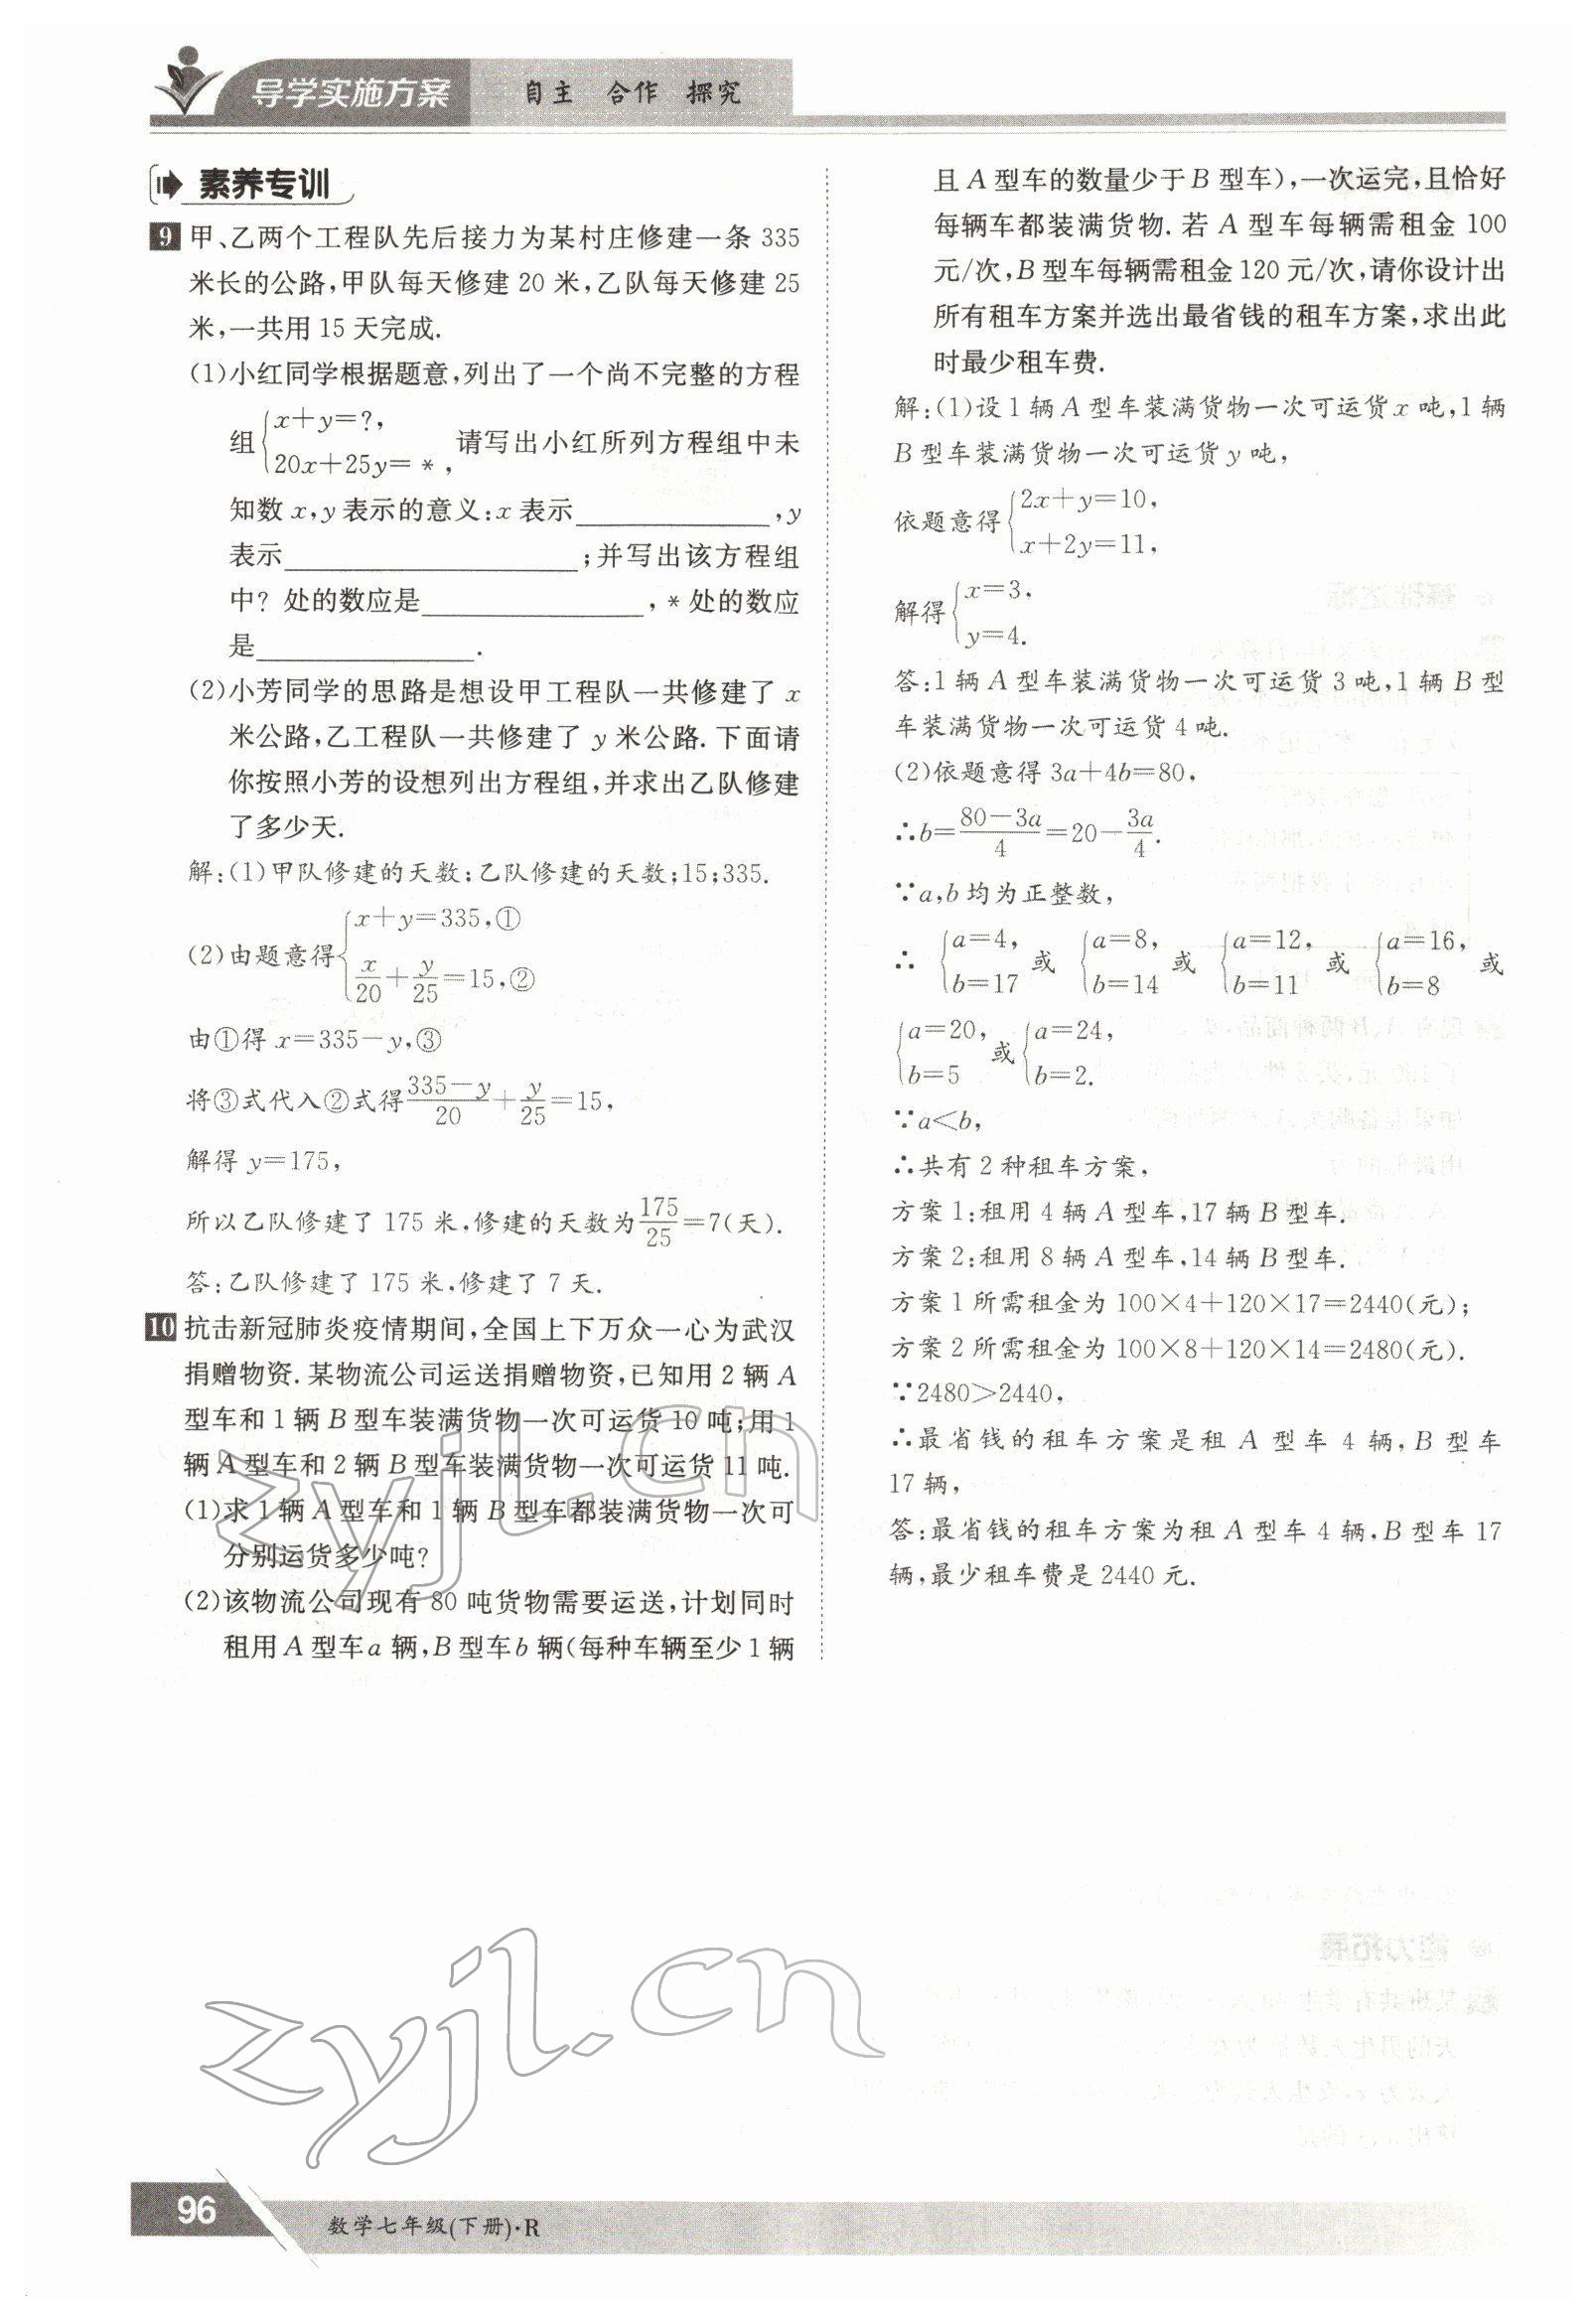 导学实施方案 自主 合作 探究
素养专训
9 甲、乙两个工程队先后接力为某村庄修建一条 335
米长的公路,甲队每天修建 20 米,乙队每天修建 25
米,一共用 15 天完成.
(1)小红同学根据题意,列出了一个尚不完整的方程
组{x+y=?, 20x+25y=*, 请写出小红所列方程组中未
知数 x,y 表示的意义:x 表示____________,y
表示____________;并写出该方程组
中? 处的数应是____________,* 处的数应
是____________.
(2)小芳同学的思路是想设甲工程队一共修建了 x
米公路,乙工程队一共修建了 y 米公路. 下面请
你按照小芳的设想列出方程组,并求出乙队修建
了多少天.
解:(1)甲队修建的天数;乙队修建的天数;15;335.
(2)由题意得{x+y=335,① x/20+y/25=15,②
由①得 x=335-y,③
将③式代入②式得(335-y)/20+y/25=15,
解得 y=175,
所以乙队修建了 175 米,修建的天数为175/25=7(天).
答:乙队修建了 175 米,修建了 7 天.
10 抗击新冠肺炎疫情期间,全国上下万众一心为武汉
捐赠物资. 某物流公司运送捐赠物资,已知用 2 辆 A
型车和 1 辆 B 型车装满货物一次可运货 10 吨;用 1
辆 A 型车和 2 辆 B 型车装满货物一次可运货 11 吨.
(1)求 1 辆 A 型车和 1 辆 B 型车都装满货物一次可
分别运货多少吨?
(2)该物流公司现有 80 吨货物需要运送,计划同时
租用 A 型车 a 辆,B 型车 b 辆(每种车辆至少 1 辆
且 A 型车的数量少于 B 型车),一次运完,且恰好
每辆车都装满货物. 若 A 型车每辆需租金 100
元/次,B 型车每辆需租金 120 元/次,请你设计出
所有租车方案并选出最省钱的租车方案,求出此
时最少租车费.
解:(1)设 1 辆 A 型车装满货物一次可运货 x 吨,1 辆
B 型车装满货物一次可运货 y 吨,
依题意得{2x+y=10, x+2y=11,
解得{x=3, y=4.
答:1 辆 A 型车装满货物一次可运货 3 吨,1 辆 B 型
车装满货物一次可运货 4 吨.
(2)依题意得 3a+4b=80,
∴b=(80-3a)/4=20-3a/4.
∵a,b 均为正整数,
∴{a=4, b=17 或 {a=8, b=14 或 {a=12, b=11 或 {a=16, b=8 或
{a=20, b=5 或 {a=24, b=2.
∵a<b,
∴共有 2 种租车方案,
方案 1:租用 4 辆 A 型车,17 辆 B 型车.
方案 2:租用 8 辆 A 型车,14 辆 B 型车.
方案 1 所需租金为 100×4+120×17=2440(元);
方案 2 所需租金为 100×8+120×14=2480(元).
∵2480>2440,
∴最省钱的租车方案是租 A 型车 4 辆,B 型车
17 辆,
答:最省钱的租车方案为租 A 型车 4 辆,B 型车 17
辆,最少租车费是 2440 元.
zyjl.cn
zyjl.cn
96 数学七年级(下册)·R